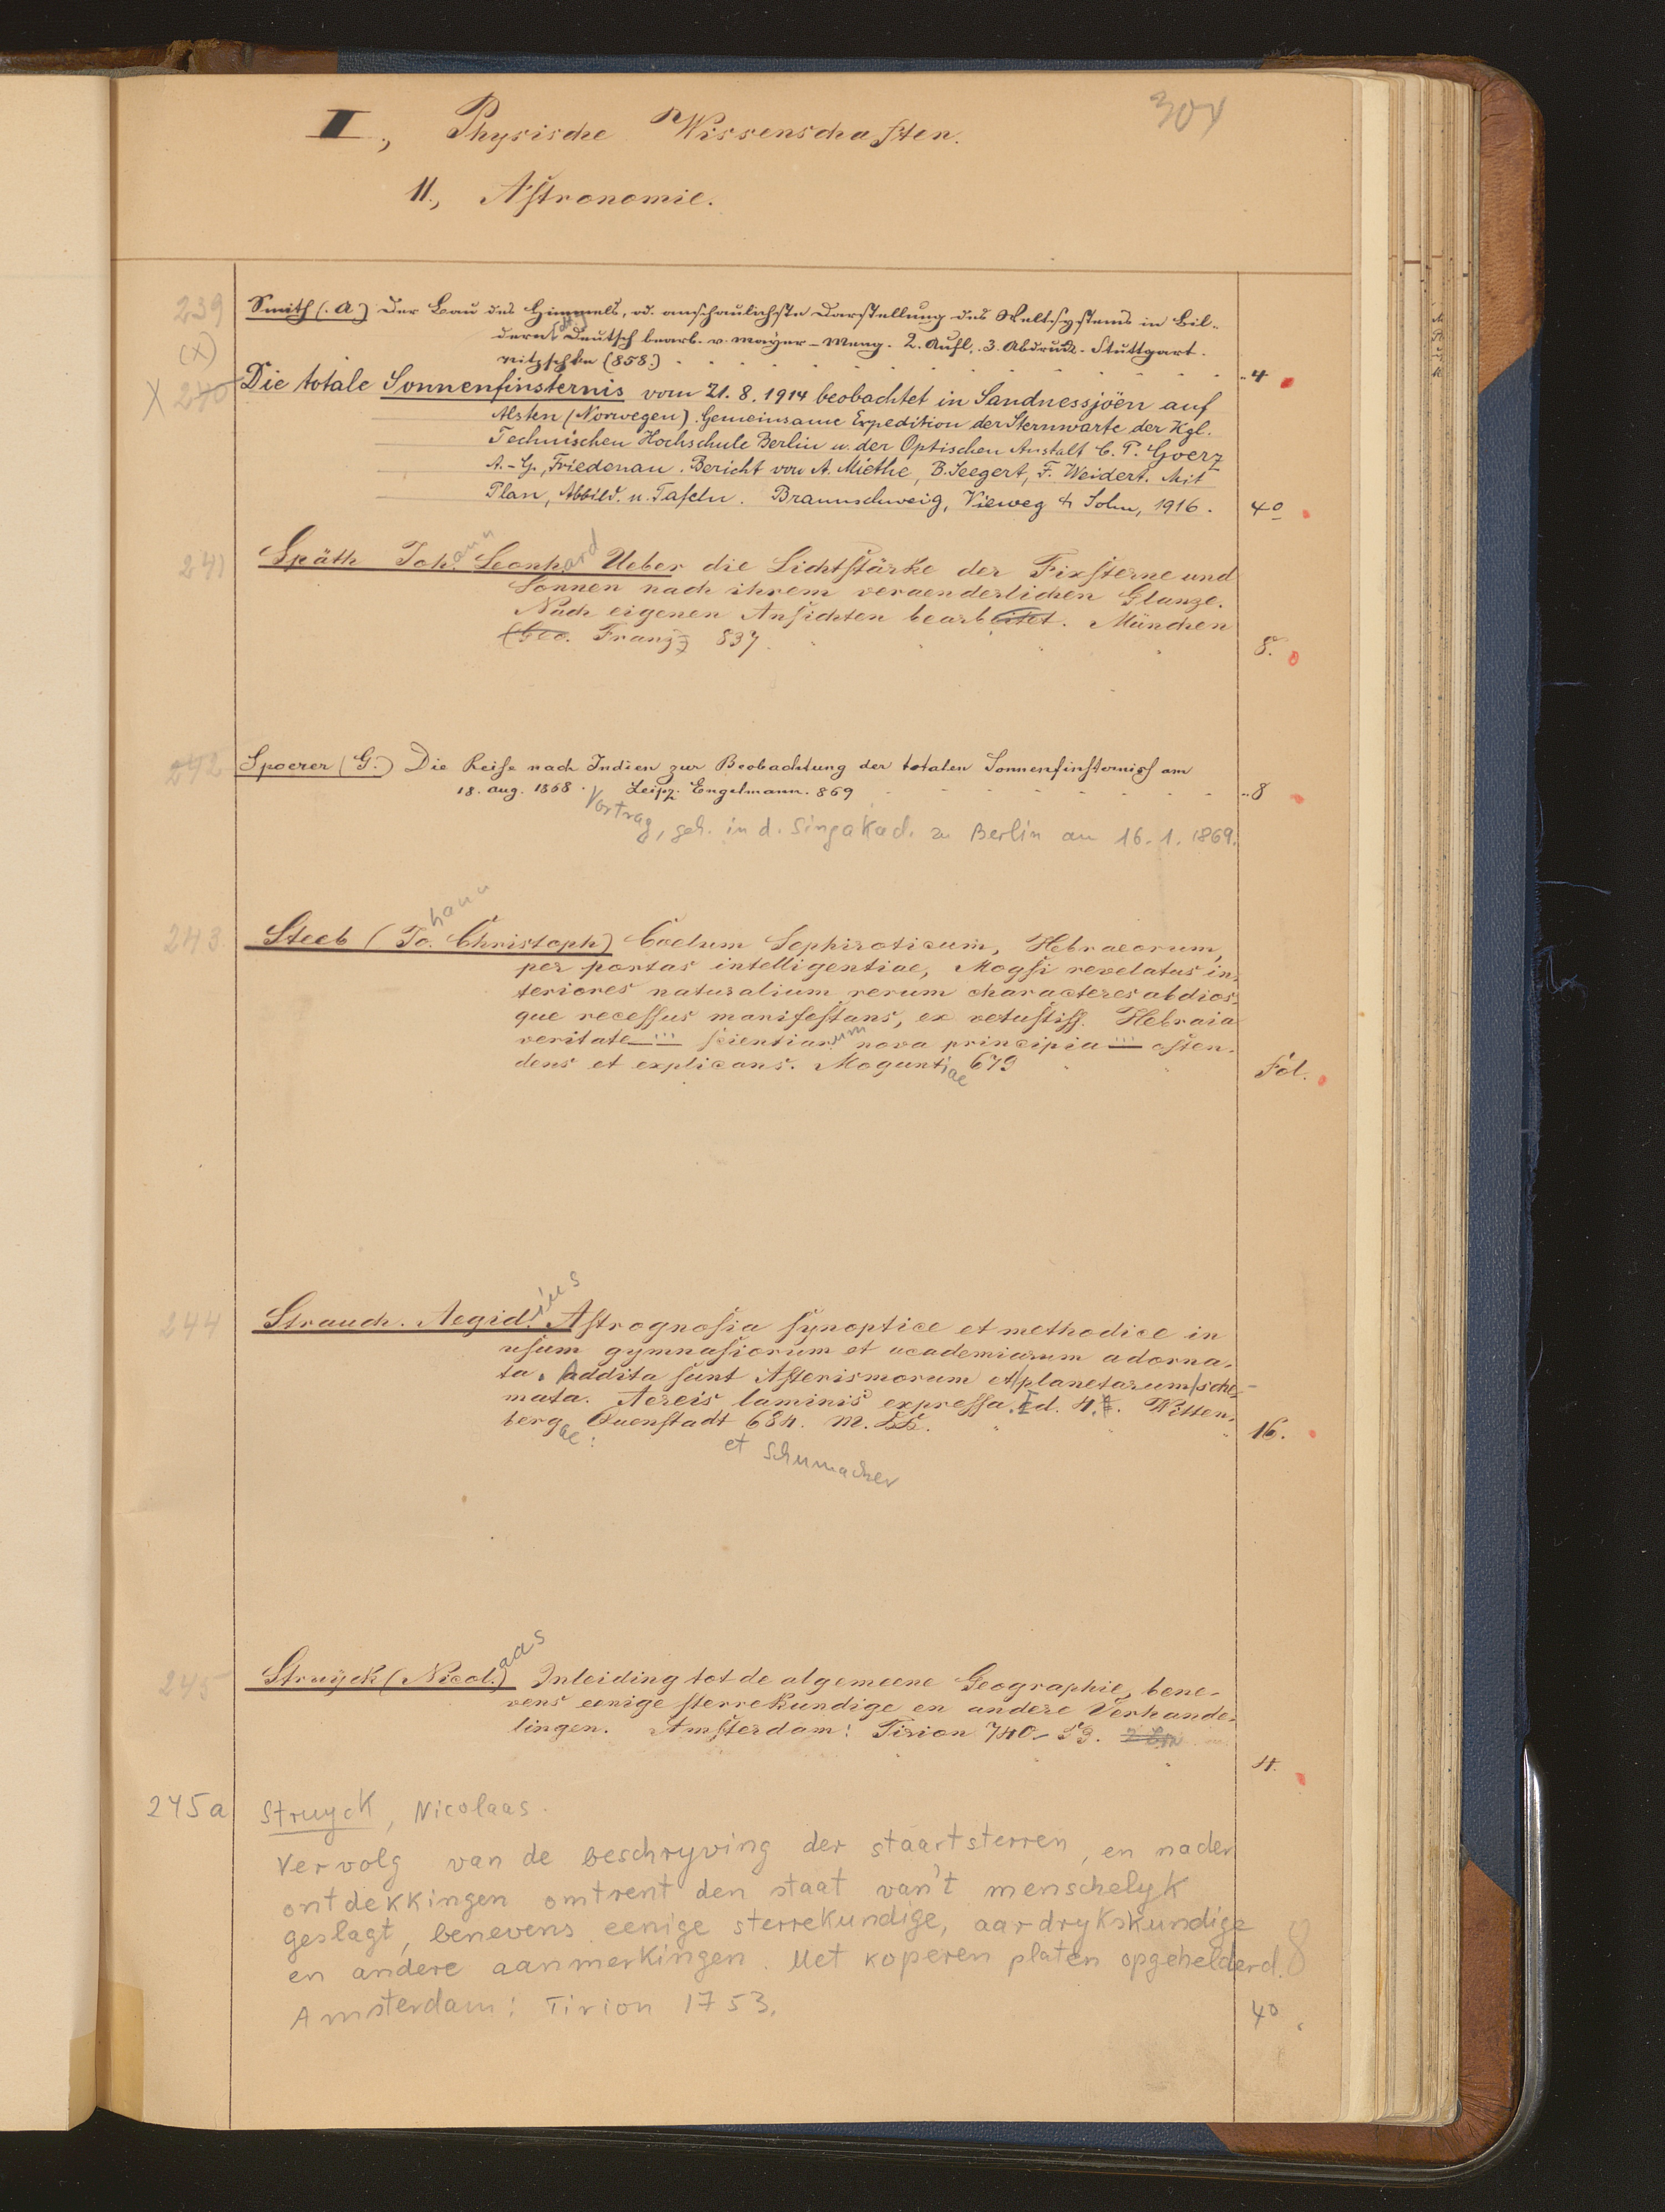 304
II., Physische Wissenschaften.
11., Astronomie.
239 Smith (A) Der Bau des Himmels, od. anschaulichste Darstellung des Weltsystems in Bil-
dern. Deutsch bearb. v. Mayer-Meng. 2. Aufl., 3. Abdruck. Stuttgart.
(X) Nitzschke (858.) 4
X 240 Die totale Sonnenfinsternis vom 21. 8. 1914 beobachtet in Sandnessjöen auf
Alsten (Norwegen). Gemeinsame Expedition der Sternwarte der Kgl.
Technischen Hochschule Berlin u. der Optischen Anstalt C. P. Goerz
A.-G., Friedenau. Bericht von A. Miethe, B. Seegert, F. Weidert. Mit
Plan, Abbild. u. Tafeln. Braunschweig, Vieweg & Sohn, 1916. 4º
241 Späth Johann Leonhard Ueber die Lichtstärke der Fixsterne und
Sonnen nach ihrem veraenderlichen Glanze.
Nach eigenen Ansichten bearbeitet. München
(Geo. Franz) 837. 8.
242 Spoerer (G.) Die Reise nach Indien zur Beobachtung der totalen Sonnenfinsterniss am
18. Aug. 1868. Leipz. Engelmann. 869 8
Vortrag, geh. in d. Singakad. zu Berlin am 16. 1. 1869.
243 Steeb (Johann Christoph) Coelum Sephiroticum, Hebraeorum,
per portas intelligentiae, Moysi revelatus in-
teriores naturalium rerum characteres abdios-
que recessus manifestans, ex vetustiss. Hebraia
veritate ... scientiarum nova principia ... osten-
dens et explicans. Moguntiae 679 Fol.
244 Strauch. Aegidius Astrognosia synoptice et methodice in
usum gymnasiorum et academiarum adorna-
ta. Addita sunt Asterismorum et/planetarum/sche-
mata. Aereis laminis expressa. Ed. 4. Witten-
bergae: Quenstadt 684. m. KK. 16.
et Schumacher
245 Struÿck (Nicolaas) Inleiding tot de algemeene Geographie, bene-
vens eenige sterrekundige en andere Verhande-
lingen. Amsterdam: Tirion 740-53.
4.
245a Struyck, Nicolaas.
Vervolg van de beschryving der staartsterren, en nader
ontdekkingen omtrent den staat van't menschelyk
geslagt, benevens eenige sterrekundige, aardrykskundige
en andere aanmerkingen. Met koperen platen opgehelderd. 8
Amsterdam: Tirion 1753. 4º